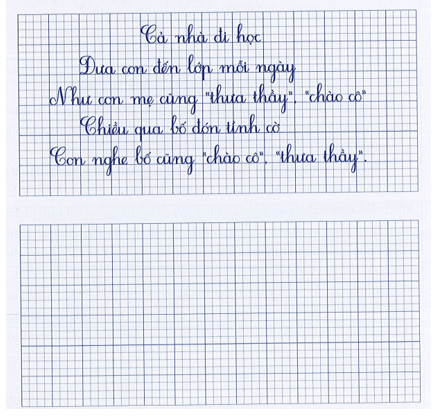 Cả nhà đi học
Đưa con đến lớp mỗi ngày
Như con mẹ cũng "thưa thầy", "chào cô"
Chiều qua bố đón tình cờ
Con nghe bố cũng "chào cô", "thưa thầy".